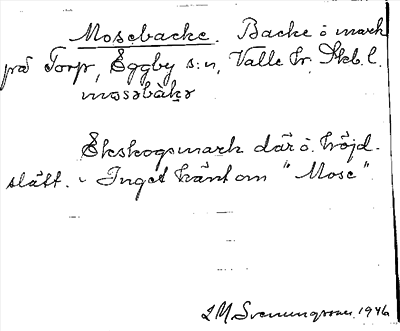 Mosebacke. Backe ö mark
på Torp, Eggby s:n, Valle hr. Skb. l.
mosəbakə
Ekskogsmark där ö. höjd-
slätt. - Inget känt om "Mose".
S M Svenungsson 1946